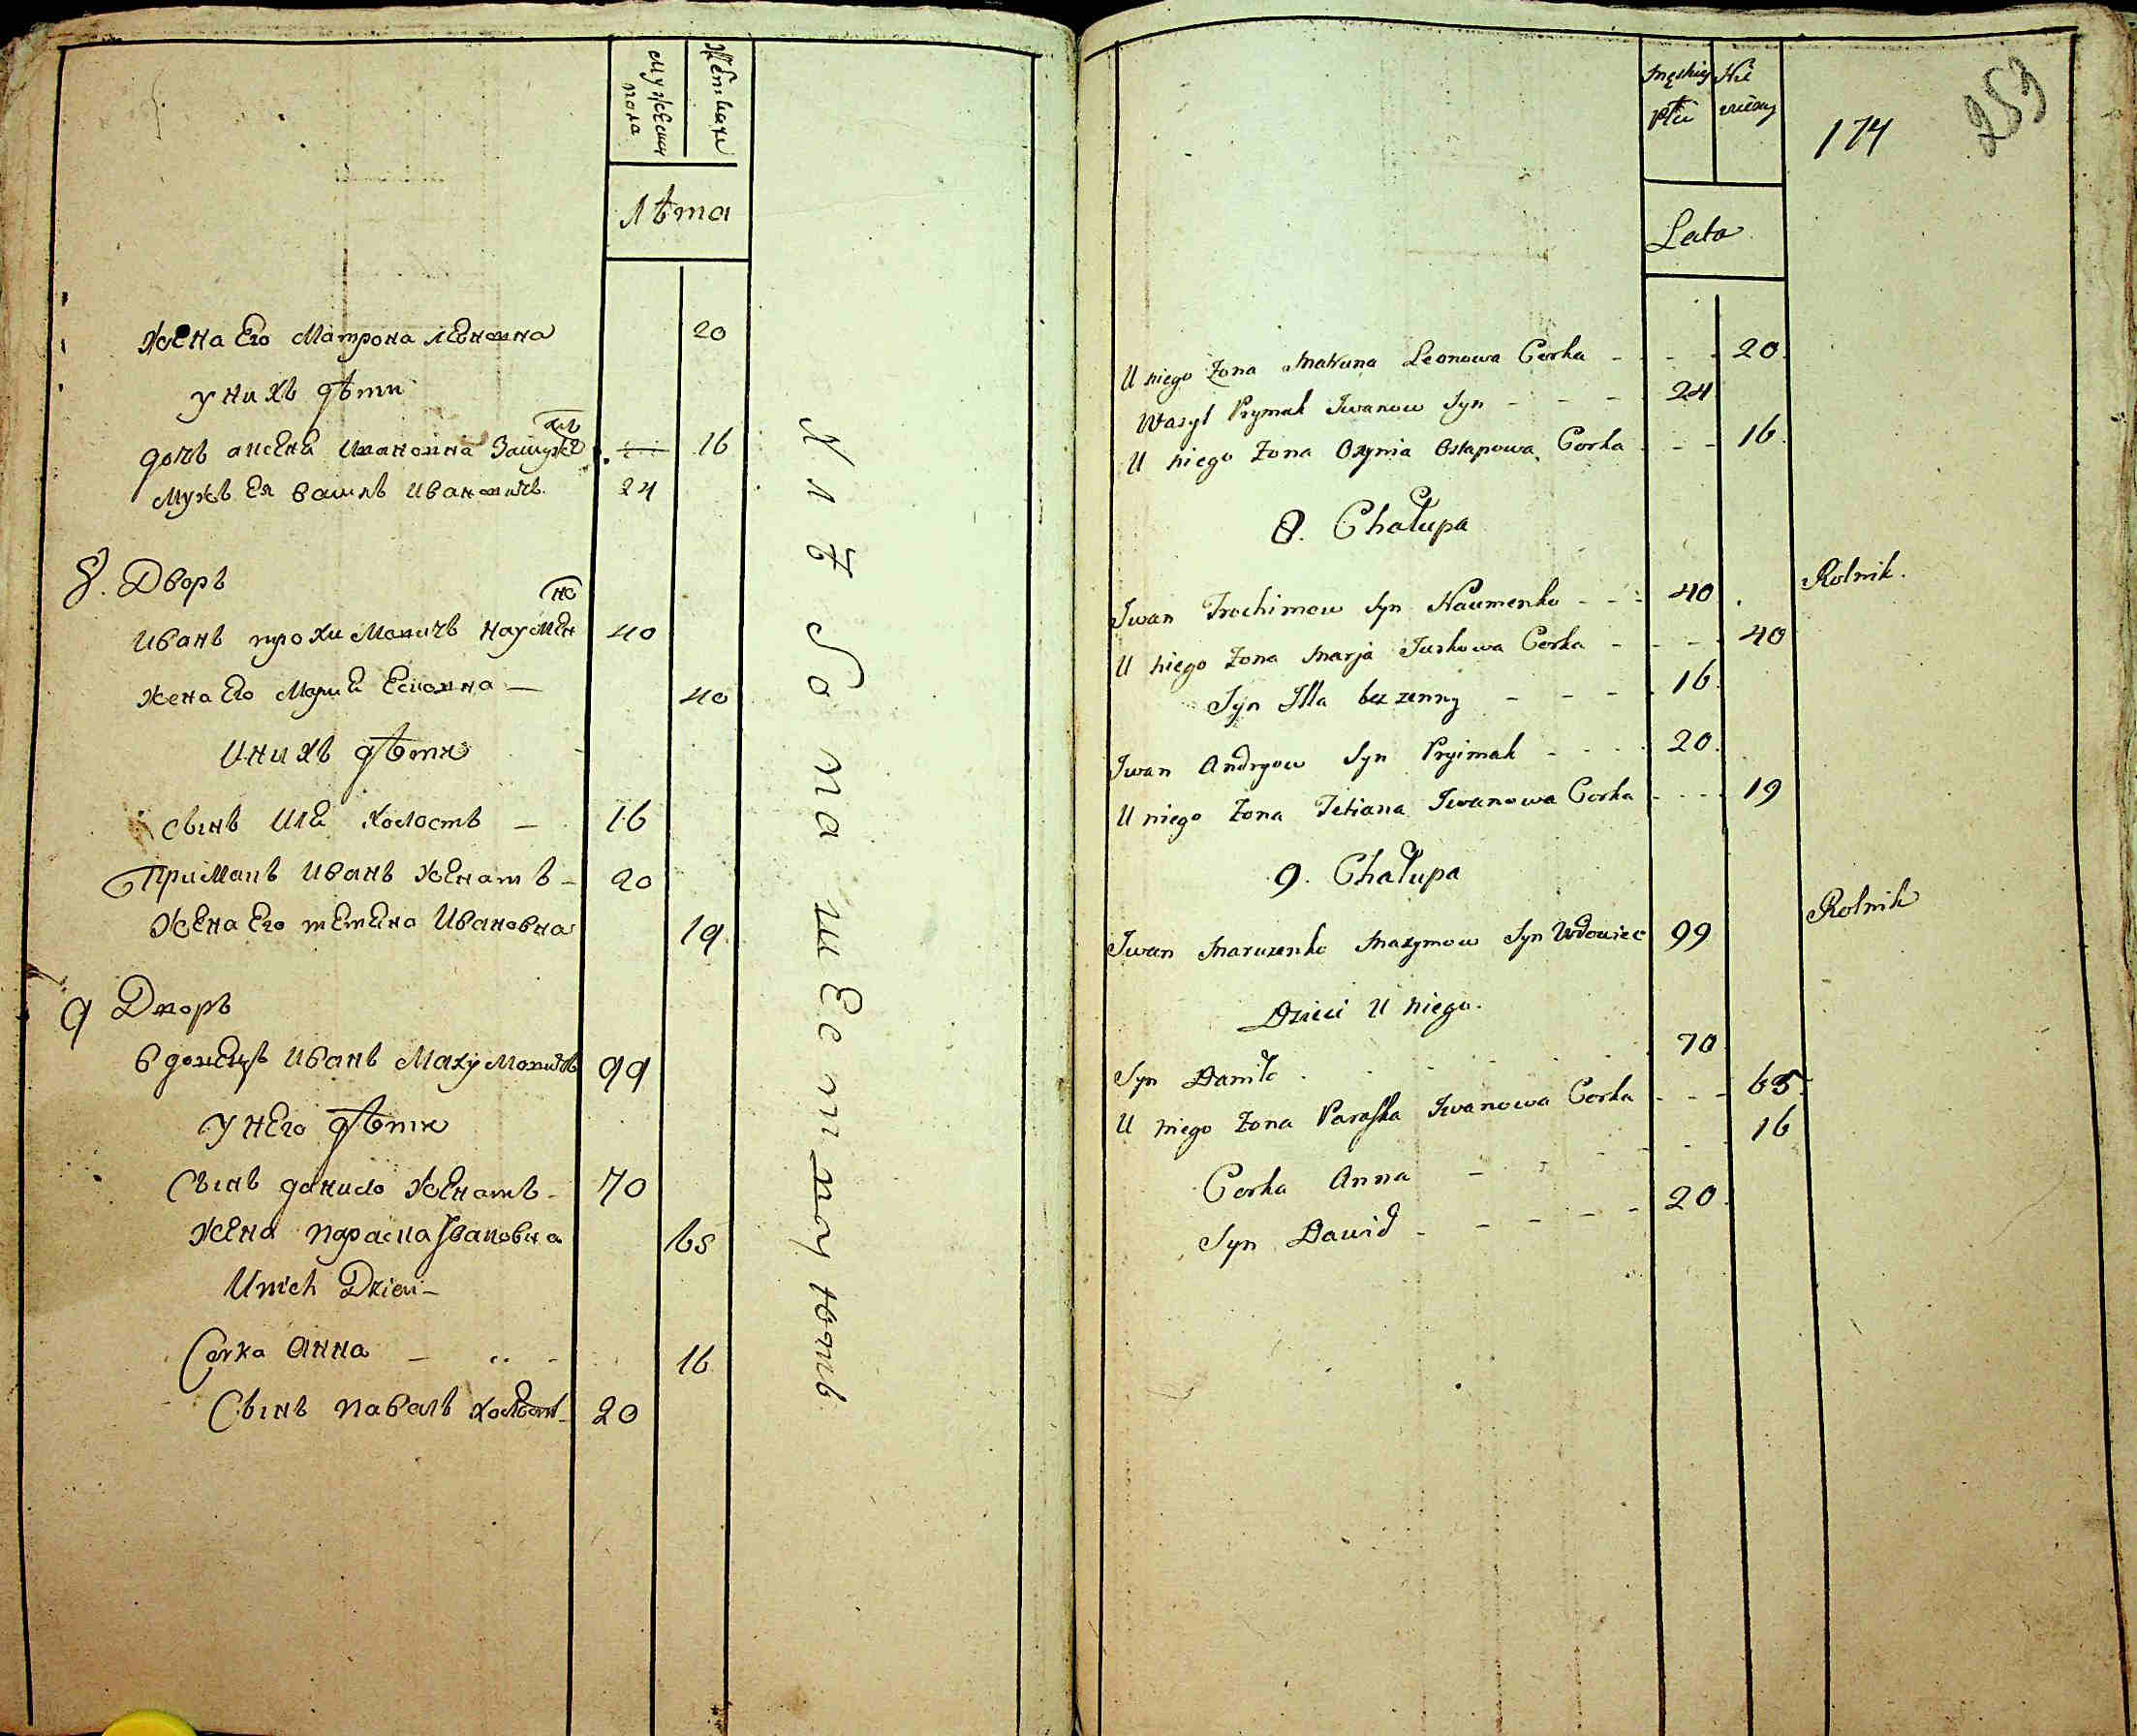 мужеска пола
женска
лѣта
жена его Матрона леновна 20
у нихъ дѣти
дочь аксеня ивановна Замужем 16
Мужъ ея василь ивановичъ 24
8. Дворъ
иванъ трохимовичъ Наумен ко 40
жена его Мария Есковна — 40
у нихъ дѣти
сынъ иля холостъ — 16
Приймакъ иванъ женатъ — 20
жена его тетяна Ивановна 19
9 Дворъ
вдовецъ иванъ Махумовичъ 99
у него дѣти
сынъ данило женатъ — 70
жена параска Iвановна 65
U nich Dzieci —
Corka анна — 16
Сынъ павалъ холостъ — 20
хлѣбопашествуютъ
męskiey płci
Nie wiesciey
174
259
Lata
U niego Zona Matruna Leonowa Corka - - - 20
Wasyl Prymak Iwanow Syn - - - 24
U niego Zona Oxynia Ostapowa Corka - - 16
8. Chałupa
Iwan Trochimow Syn Naumenko - - - 40 Rolnik.
U niego Zona Marja Juskowa Corka - - - 40
Syn Illa bezzenny - - - 16
Iwan Andryow Syn Pryimak - - - 20
U niego Zona Tetiana Iwanowa Corka - - - 19
9. Chałupa
Iwan Maruzenko Maxymow Syn Wdowiec 99 Rolnik
Dzieci U niego.
Syn Daniło 70
U niego Zona Paraska Iwanowa Corka - - - 65
Corka Anna - - - 16
Syn Dawid - - - - - 20